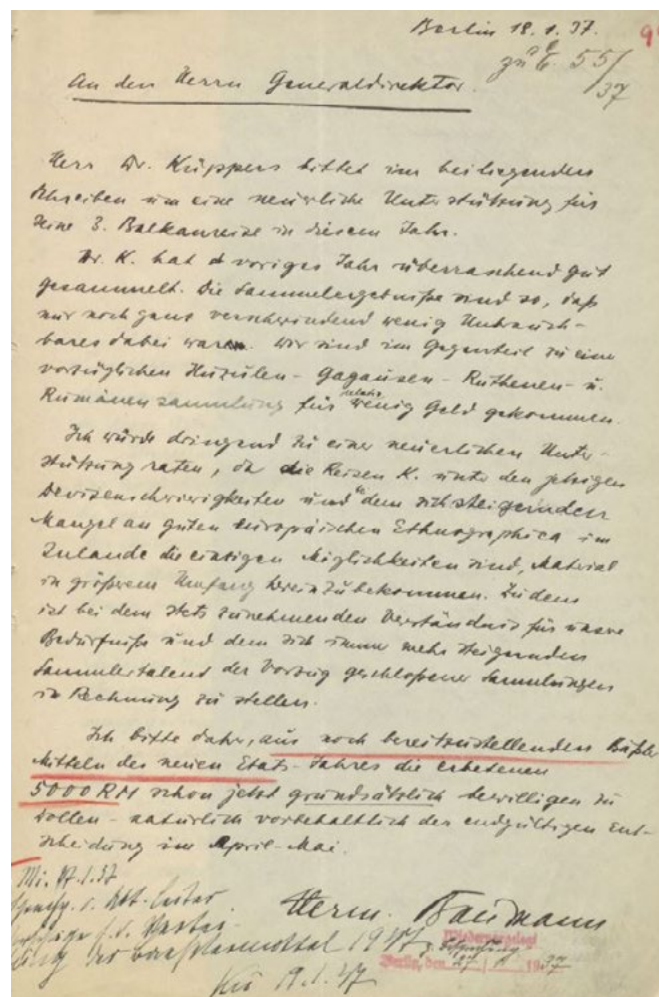 Berlin 18. 1. 37.
zu E. 55/37
An den Herrn Generaldirektor.
Herr Dr. Küppers bittet im beiliegenden
Schreiben um eine neuerliche Unterstützung für
seine 3. Balkanreise in diesem Jahr.
Dr. K. hat voriges Jahr überraschend gut
gesammelt. Die Sammelergebniße sind so, daß
nur noch ganz verschwindend wenig Unbrauch-
bares dabei war. Wir sind im Gegenteil zu einer
vorzüglichen Huzulen- Gagausen- Ruthenen- u.
Rumänensammlung für relativ wenig Geld gekommen.
Ich würde dringend zu einer neuerlichen Unter-
stützung raten, da die Reisen K. unter den jetzigen
Devisenschwierigkeiten und dem sich steigernden
Mangel an guten europäischen Ethnographica im
Inlande die einzigen Möglichkeiten sind, Material
in größrem Umfang hereinzubekommen. Zudem
ist bei dem stets zunehmenden Verständnis für unsere
Bedürfniße und dem sich immer mehr steigenden
Sammlertalent der Vorzug geschloßener Sammlungen
in Rechnung zu stellen.
Ich bitte daher, aus noch bereitzustellenden Bäßler
Mitteln des neuen Etats-Jahres die erbetenen
5000 RM schon jetzt grundsätzlich bewilligen zu
wollen - natürlich vorbehaltlich der endgültigen Ent-
scheidung im April-Mai.
Herm. Baumann
Wiedervorgelegt
Berlin, den 27 / 1 1937
Kü 19.1.37